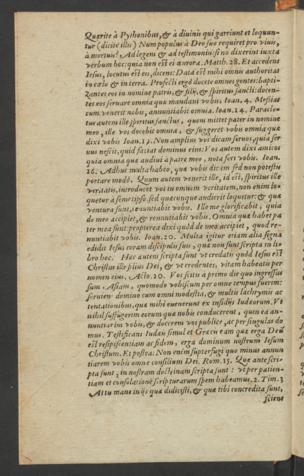 Querite à Pythonibus, & à diuinis qui garriunt et loquun-
tur (dicite illis) Num populus à Deo suo requiret pro viuis,
à mortuis? Ad legem & ad testimonium: si nō dixerint iuxta
verbum hoc: quia non est ei aurora. Matth. 28. Et accedens
Iesus, locutus est eis, dicens: Data est mihi omnis authoritas
in cælo & in terra. Profecti ergo docete omnes gentes: bapti-
zantes eos in nomine patris, & filij, & spiritus sancti: docen-
tes eos seruare omnia quæ mandaui vobis. Ioan. 4. Messias
cum venerit nobis, annuntiabit omnia. Ioan. 14. Paracle-
tus autem ille spiritus sanctus, quem mittet pater in nomine
meo, ille vos docebit omnia, & suggeret vobis omnia quæ
dixi vobis Ioan. 15. Non amplius vos dicam seruos, quia ser-
uus nescit, quid faciat dominus eius: Vos autem dixi amicos
quia omnia quæ audiui à patre meo, nota feci vobis. Ioan.
16. Adhuc multa habeo, quæ vobis dicem sed non potestis
portare modò. Quum autem venerit ille, id est, spiritus ille
veritatis, introducet vos in omnem veritatem, non enim lo-
quetur à semetipso, sed quæcunque audierit loquetur: & quæ
ventura sunt, annuntiabit vobis. Ille me glorificabit, quia
de meo accipiet, & renuntiabit vobis. Omnia quæ habet pa-
ter mea sunt: propterea dixi quòd de meo accipiet, quod re-
nuntiabit vobis. Ioan. 20. Multa igitur etiam alia signa
edidit Iesus coram discipulis suis, quæ non sunt scripta in li-
bro hoc. Hæc autem scripta sunt vt credatis quòd Iesus est
Christus ille filius Dei, & vt credentes, vitam habeatis per
nomen eius. Acto. 20. Vos scitis à primo die quo ingressus
sum Asiam, quomodo vobiscum per omne tempus fuerim:
seruiens domino cum omni modestia, & multis lachrymis ac
tentationibus, quæ mihi euenerunt ex insidijs Iudæorum. Vt
nihil suffugerim eorum quæ nobis conducerent, quin ea an-
nuntiarim vobis, & docerem vos publicè, ac per singulas do-
mus. Testificans Iudæis simul et Græcis eam quæ erga Deū
est resipiscentiam ac fidem, erga dominum nostrum Iesum
Christum. Et postea: Non enim supterfugi quo minus annun
tiarem vobis omne consilium Dei. Rom. 15. Quæ ante scri-
pta sunt, in nostram doctrinam scripta sunt: vt per patien-
tiam et consolationē scripturarum spem habeamus. 2. Tim. 3
At tu mane in ijs quæ didicisti, & quæ tibi concredita sunt,
sciens